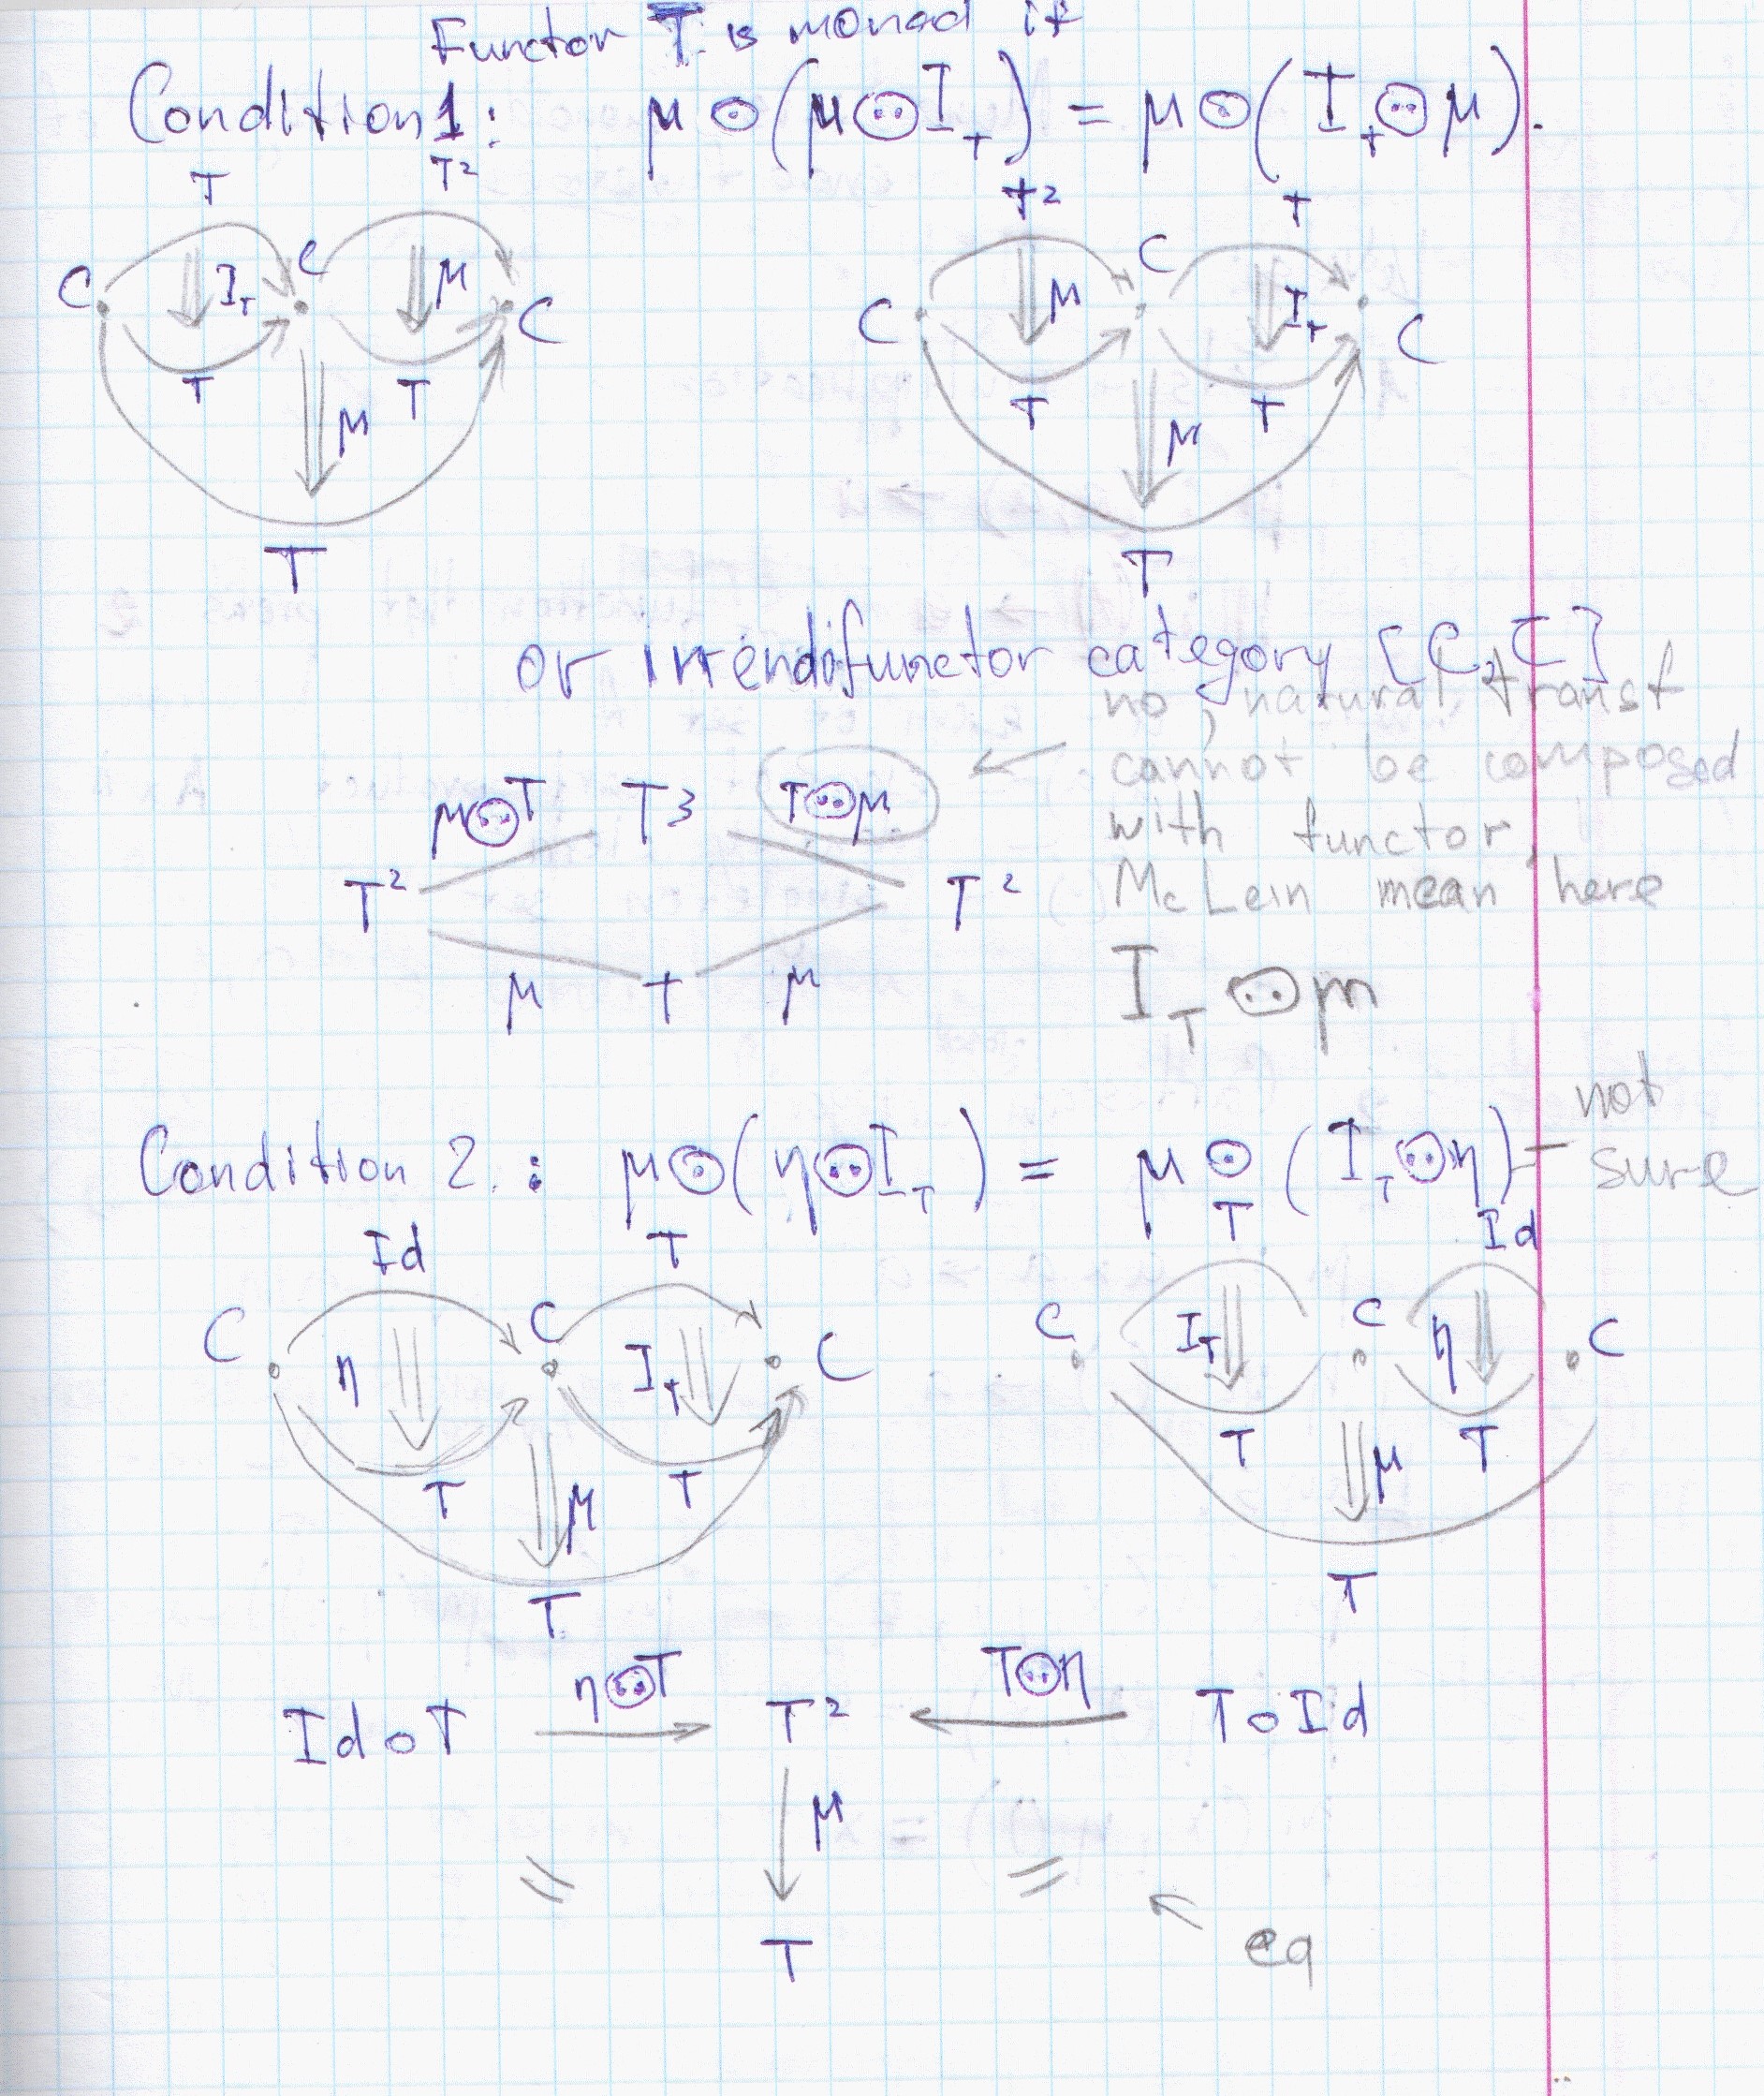 Functor T is monad if
Condition 1: μ ⊙ (μ ⊙⊙ I_T) = μ ⊙ (I_T ⊙⊙ μ).
T T² T² T
C I_T C μ C C μ C I_T C
T T T T
μ μ
T T
or in endofunctor category [C, C]
no, natural transf
cannot be composed
with functor,
McLein mean here
I_T ⊙⊙ m
μ⊙⊙T T³ T⊙⊙μ
T² T²
μ T μ
Condition 2.: μ ⊙ (η ⊙⊙ I_T) = μ ⊙ (I_T ⊙⊙ η) – not sure
Id T T Id
C η C I_T C C I_T C η C
T T T T
μ μ
T T
Id ∘ T η⊙⊙T T² T⊙⊙η T ∘ Id
μ
= =
T
eq